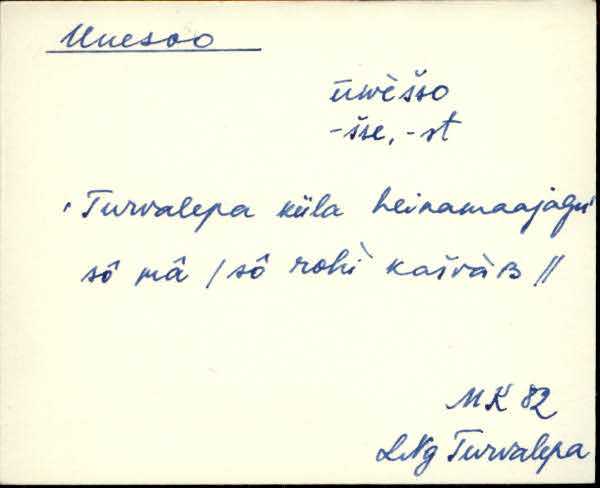 Uuesoo
ūwèšso
-šse, -st
Turvalepa küla heinamaajagu
sô mâ / sô rohì kašvàʙ //
MK 82
LNg Turvalepa